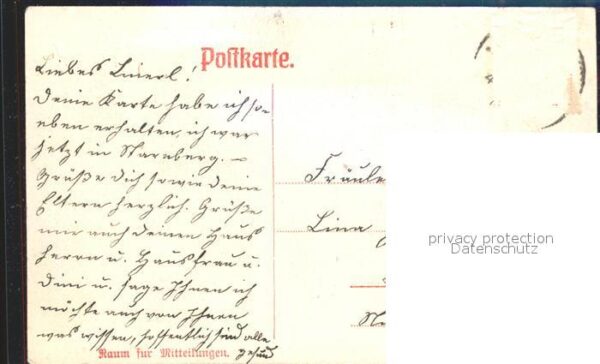 Postkarte.
Liebes Linerl!
Deine Karte habe ich so-
eben erhalten, ich war
jetzt in Starnberg. –
Grüße Dich sowie deine
Eltern herzlich. Grüße
mir auch deinen Haus
herrn u. Hausfrau u.
Dini u. sage Ihnen ich
möchte auch von Ihnen
was wissen, hoffentlich sind alle
gesund
Raum für Mitteilungen.
Fräule
Lina
privacy protection
Datenschutz